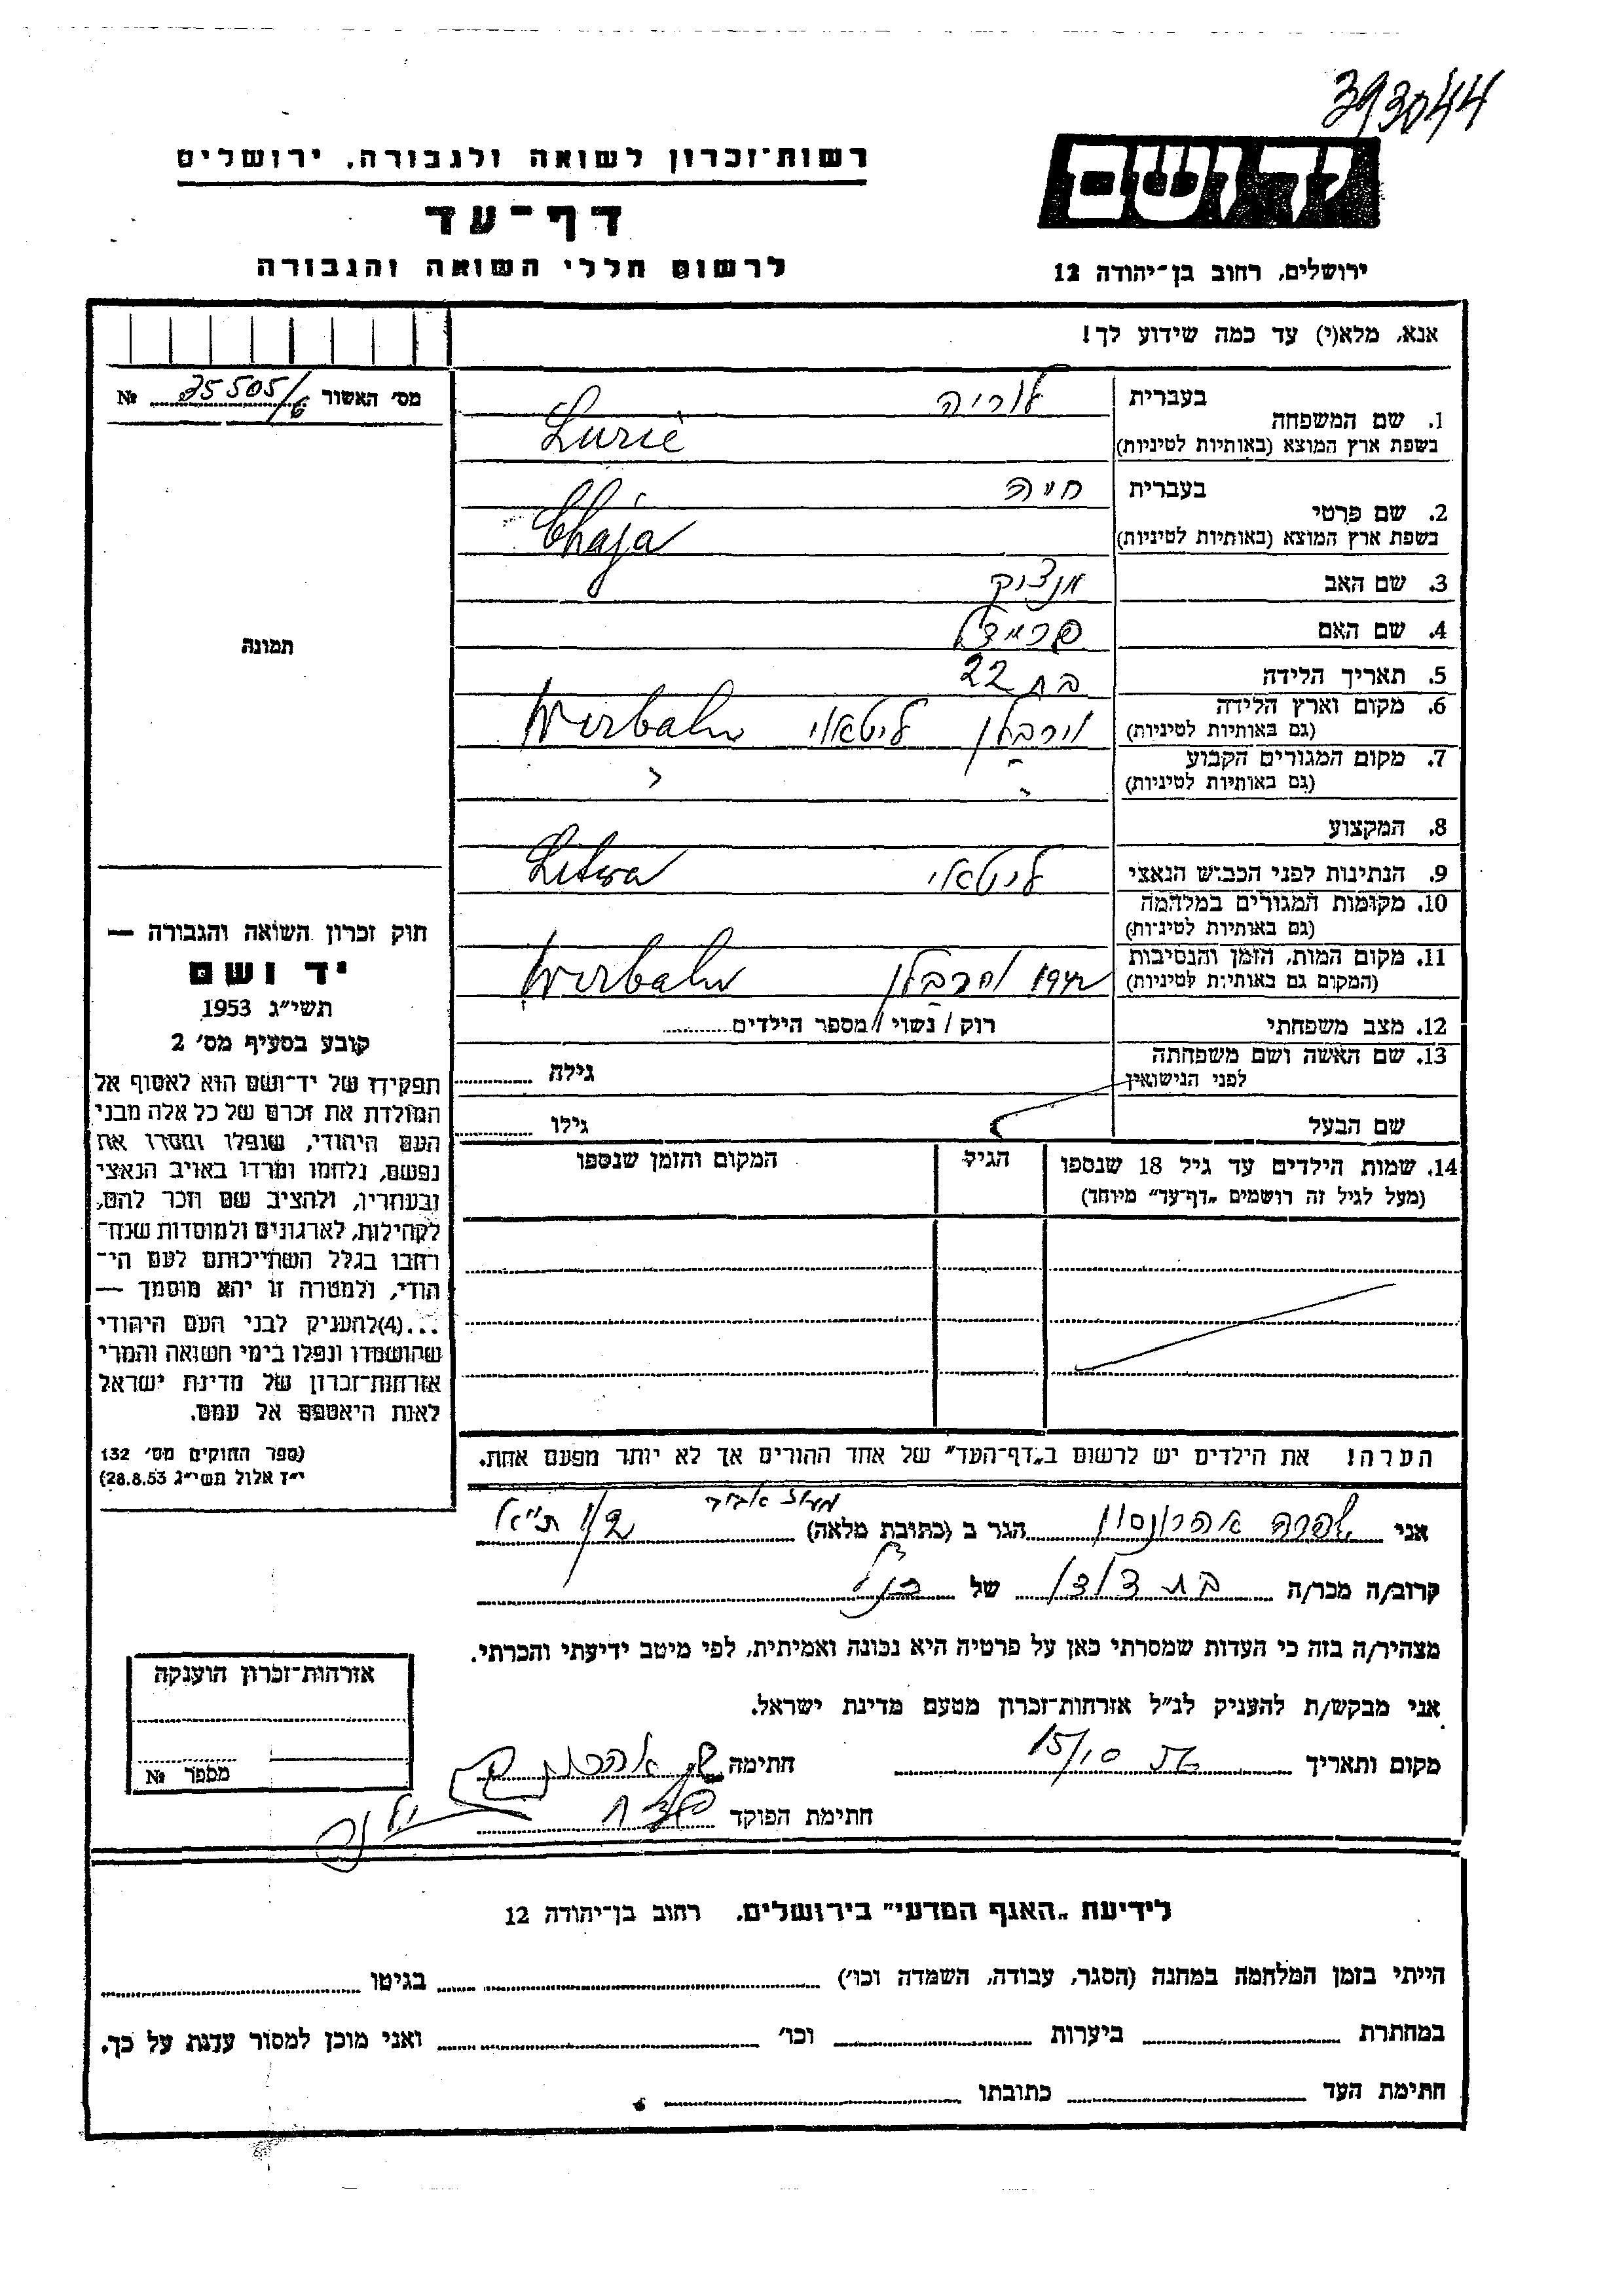 393044
יד ושם
רשות־זכרון לשואה ולגבורה, ירושלים
דף־עד
לרשום חללי השואה והגבורה
ירושלים, רחוב בן־יהודה 12
אנא, מלא(י) עד כמה שידוע לך!
מס׳ האשור № 35505/6
תמונה
1. שם המשפחה
בעברית לוריה
בשפת ארץ המוצא (באותיות לטיניות) Lurie
2. שם פרטי
בעברית חיה
בשפת ארץ המוצא (באותיות לטיניות) Chaja
3. שם האב
4. שם האם
5. תאריך הלידה בת 22
6. מקום וארץ הלידה
(גם באותיות לטיניות) וירבלן ליטאי Wirbaln
7. מקום המגורים הקבוע
(גם באותיות לטיניות)
8. המקצוע
9. הנתינות לפני הכבוש הנאצי ליטאי Litwa
10. מקומות המגורים במלחמה
(גם באותיות לטיניות)
11. מקום המות, הזמן והנסיבות
(המקום גם באותיות לטיניות) 1942 וירבלן Wirbaln
12. מצב משפחתי רוק / נשוי / מספר הילדים
13. שם האשה ושם משפחתה
לפני הנישואין גילה
שם הבעל גילו
14. שמות הילדים עד גיל 18 שנספו
(מעל לגיל זה רושמים „דף־עד״ מיוחד)
הגיל
המקום והזמן שנספו
חוק זכרון השואה והגבורה —
יד ושם
תשי״ג 1953
קובע בסעיף מס׳ 2
תפקידו של יד־ושם הוא לאסוף אל
המולדת את זכרם של כל אלה מבני
העם היהודי, שנפלו ומסרו את
נפשם, נלחמו ומרדו באויב הנאצי
ובעוזריו, ולהציב שם וזכר להם,
לקהילות, לארגונים ולמוסדות שנח־
רבו בגלל השתייכותם לעם הי־
הודי, ולמטרה זו יהא מוסמך —
...(4) להעניק לבני העם היהודי
שהושמדו ונפלו בימי השואה והמרי
אזרחות־זכרון של מדינת ישראל
לאות היאספם אל עמם.
(ספר החוקים מס׳ 132
י״ז אלול תשי״ג 28.8.53)
הערה! את הילדים יש לרשום ב„דף־העד״ של אחד ההורים אך לא יותר מפעם אחת.
אני שפרה אהרונסון הגר ב (כתובת מלאה) ת״א
קרוב/ה מכר/ה בת דודו של הנ״ל
מצהיר/ה בזה כי העדות שמסרתי כאן על פרטיה היא נכונה ואמיתית, לפי מיטב ידיעתי והכרתי.
אני מבקש/ת להעניק לנ״ל אזרחות־זכרון מטעם מדינת ישראל.
מקום ותאריך 15/10 חתימה
חתימת הפוקד
אזרחות־זכרון הוענקה
מספר №
לידיעת „האגף המדעי״ בירושלים, רחוב בן־יהודה 12
הייתי בזמן המלחמה במחנה (הסגר, עבודה, השמדה וכו׳) בגיטו
במחתרת ביערות וכו׳ ואני מוכן למסור עדות על כך.
חתימת העד כתובתו